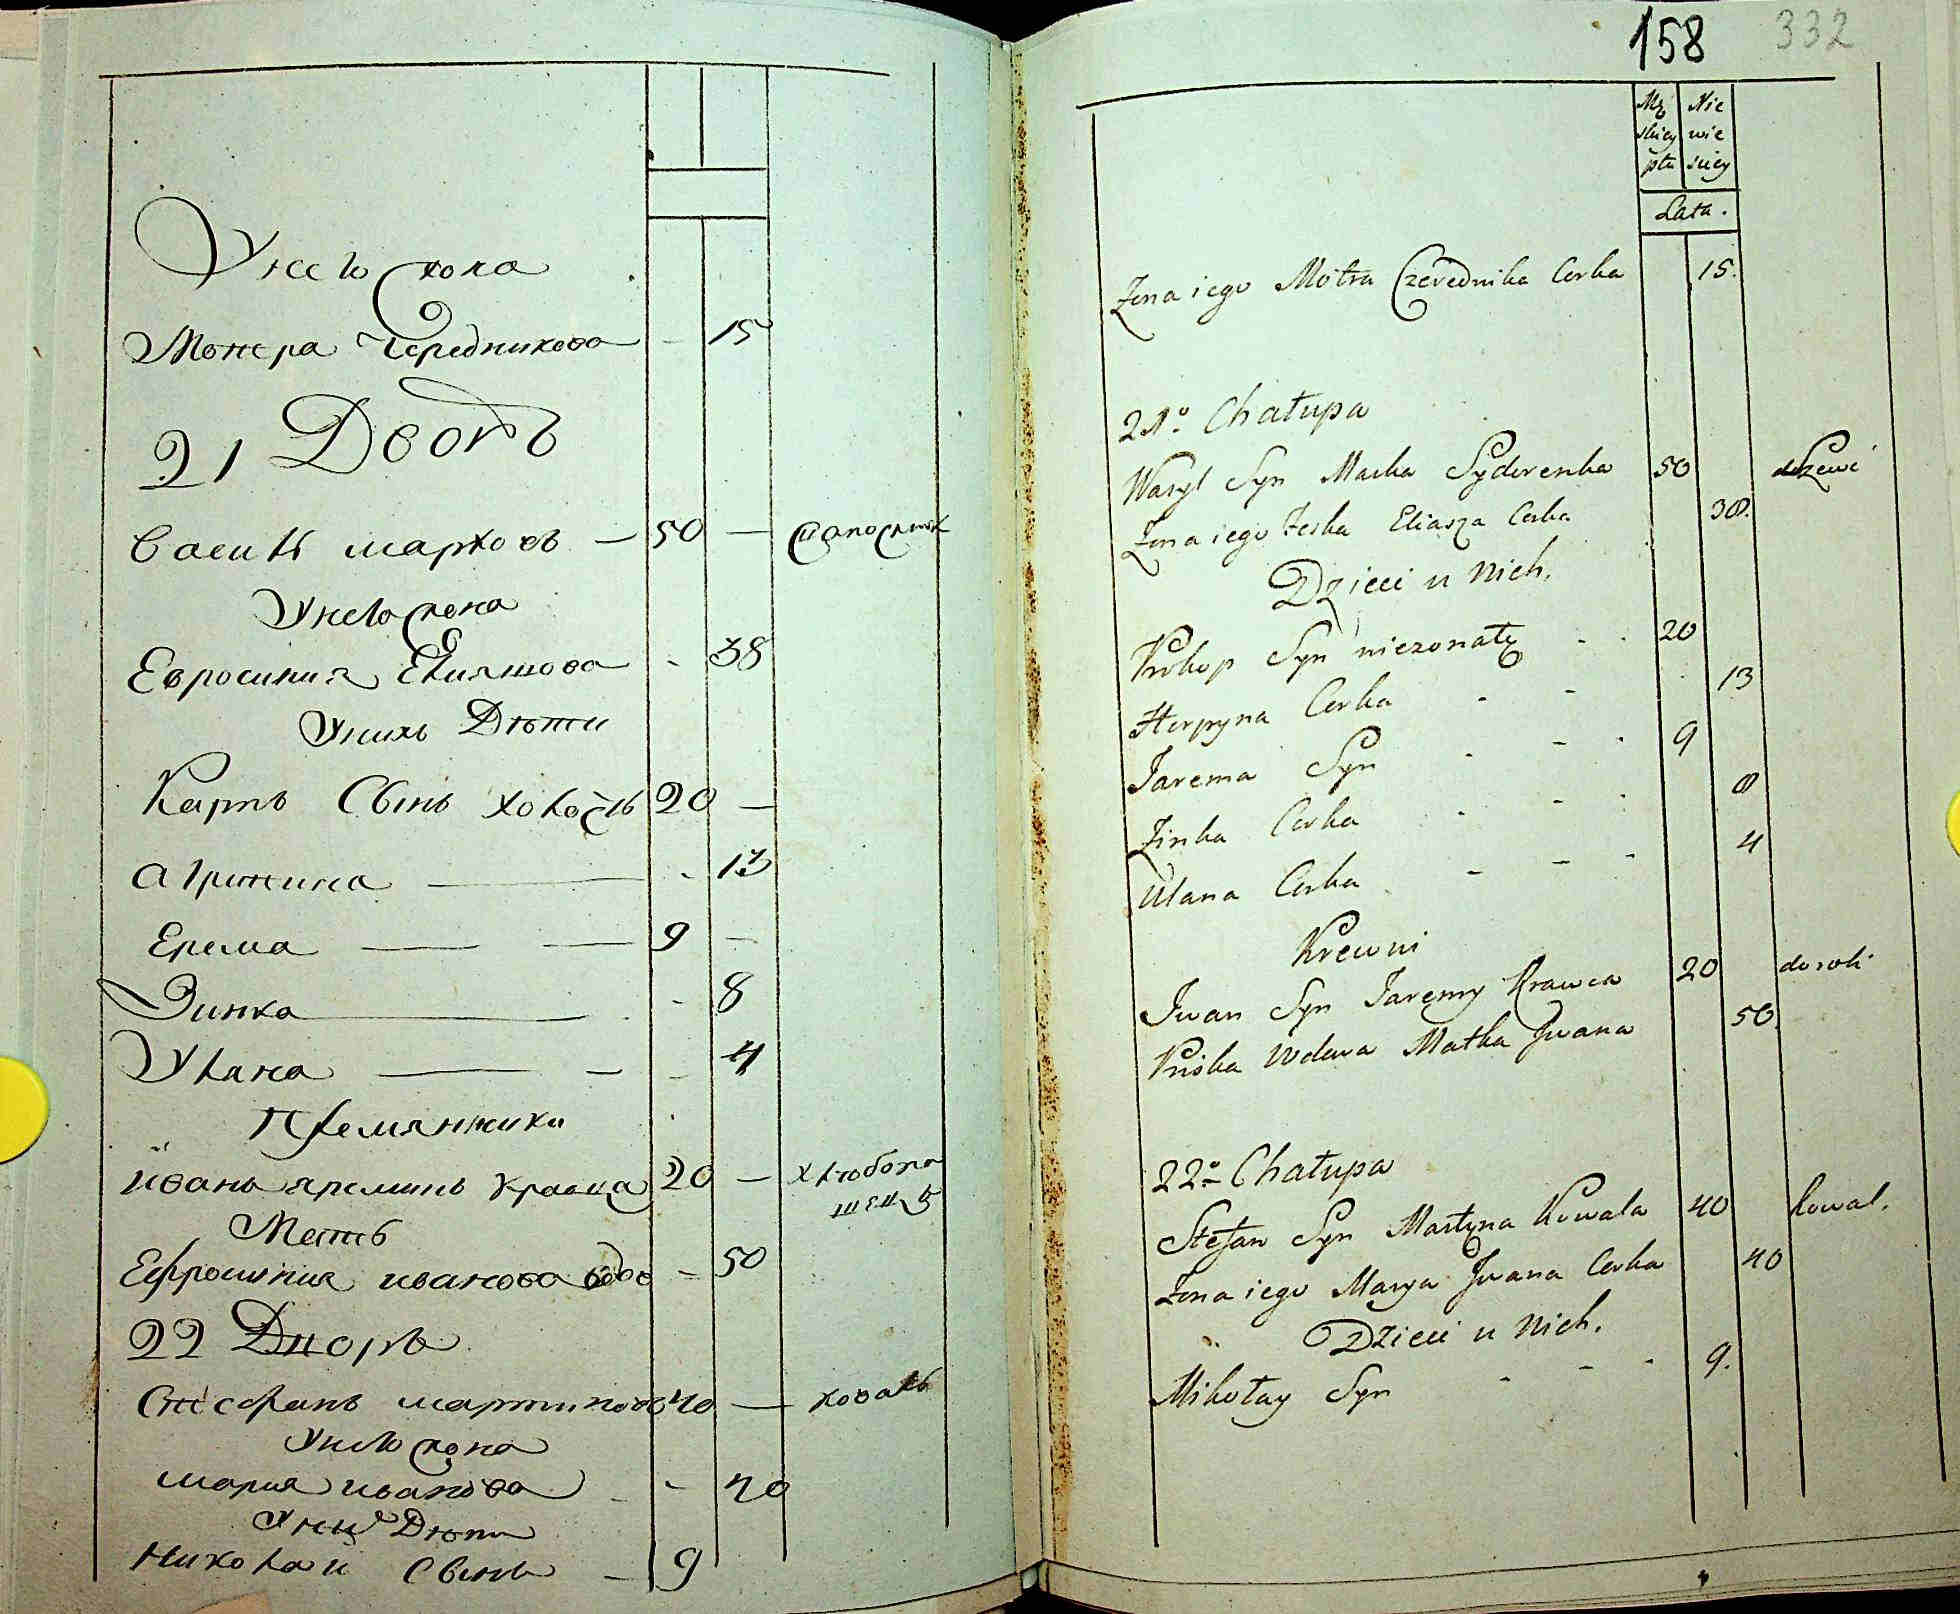 У него жона
Мотера Чередникова - 15
21 Дворъ
Василь марковъ — 50 —
У него жена
Евросиния Елияшова - 38
У нихъ Дѣти
Карпъ Сынъ холость 20 —
Агрипина — - 13
Ерема — — 9 —
Зинка — - 8
Улана — — - 4
Племянники
Иванъ яреминъ кравца 20 — хлѣбопа
шецъ
Мать
Ефросиния иванова вдова - 50
22 Дворъ
Стефанъ мартиновъ 40 — коваль
У него жона
Мария иванова - - 40
У них Дѣти
Николаи Сынъ — 9
158 332
Mę Nie
skiey wie
płci sciey
Lata.
Żona iego Motra Czerednika Corka 15.
21º Chałupa
Wasyl Syn Marka Syderenka 50
Żona iego Feska Eliasza Corka 38.
Dzieci u Nich.
Prokop Syn niezonaty - - 20
Horpyna Corka - - 13
Jarema Syn - - - 9
Zinka Corka - - - 8
Ulana Corka - - - 4
Krewni
Iwan Syn Jaremy Krawca 20 do roli
Priska Wdowa Matka Iwana 50.
22º Chałupa
Stefan Syn Martyna Kowala 40 kowal.
Żona iego Marya Iwana Corka 40
Dzieci u Nich.
Mikołay Syn - - - 9.